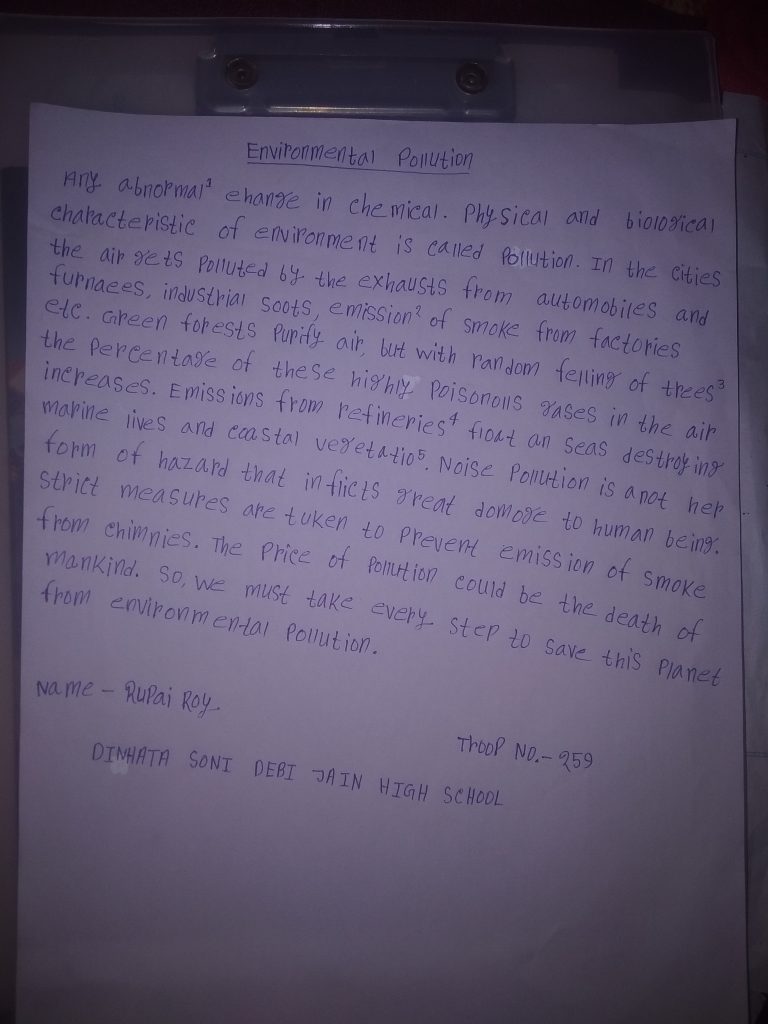 Environmental Pollution
Any abnormal¹ change in chemical. Physical and biological
characteristic of environment is called Pollution. In the cities
the air gets Polluted by the exhausts from automobiles and
furnaces, industrial soots, emission² of smoke from factories
etc. Green forests Purify air, but with random felling of trees³
the percentage of these highly Poisonous gases in the air
increases. Emissions from refineries⁴ float an seas destroying
marine lives and coastal vegetatio⁵. Noise Pollution is anot her
form of hazard that inflicts great domoge to human being.
Strict measures are tuken to prevent emission of smoke
from chimnies. The Price of Pollution could be the death of
mankind. So, we must take every step to save this Planet
from environmental Pollution.
Name - Rupai Roy
Troop No.- 259
DINHATA SONI DEBI JAIN HIGH SCHOOL